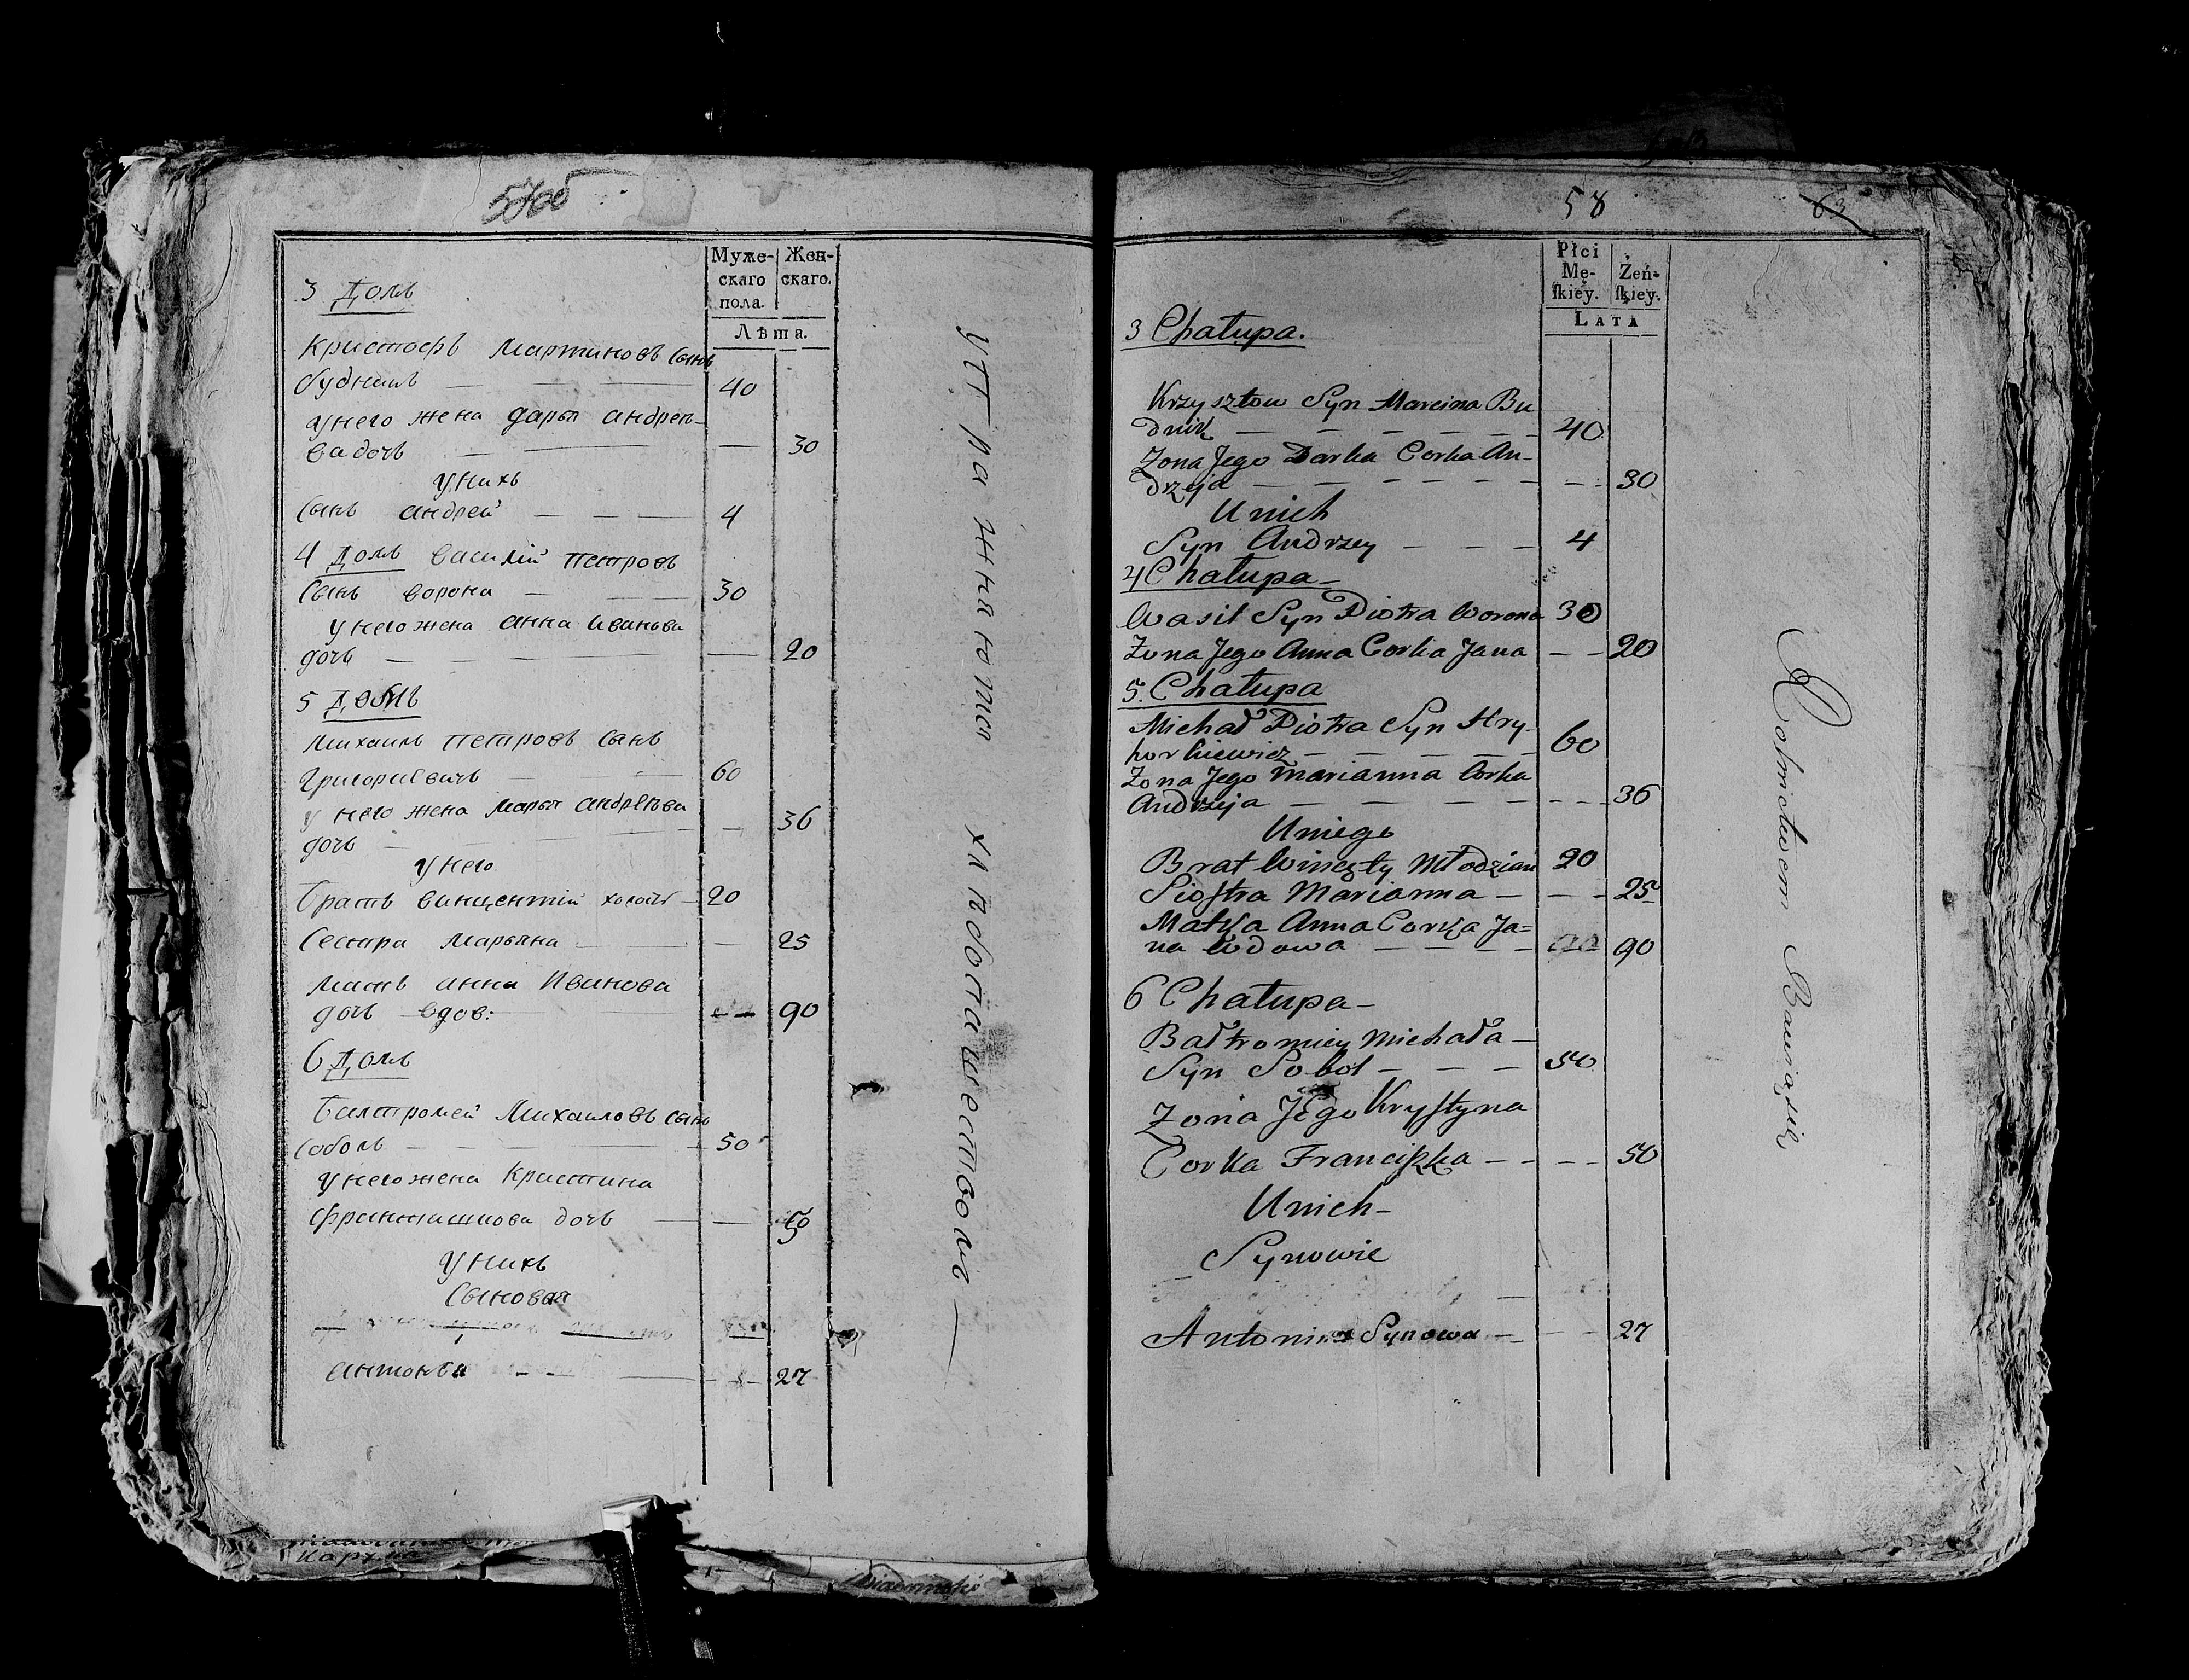 57об
Муже-
скаго
пола.
Жен-
скаго.
Лѣта.
3 Домъ
Кристофъ Мартиновъ сынъ
будникъ — — — 40
у него жена дарья андрее-
ва дочь — — — 30
у нихъ
сынъ андрей — — — 4
4 Домъ василій петровъ
сынъ ворона — — — 30
у него жена анна иванова
дочь — — — — 20
5 Домъ
михаилъ петровъ сынъ
григориевичъ — — 60
у него жена марья андрѣева
дочь — — — 36
у него
братъ винцентій холостъ — 20
сестра марьяна — — 25
мать анна Иванова
дочь вдов: — — 90
6 Домъ
Балтромей Михаиловъ сынъ
соболь — — — 50
у него жена Кристина
дочь — — 50
у нихъ
сыновья
— — 27
упражняются хлебопашествомъ —
58
63
Płci
Mę-
ſkiey.
Żeń-
ſkiey.
LATA
3 Chałupa.
Krzysztow Syn Marcina Bu
dnik — — — — — — 40
Zona Jego Darka Corka An-
drzeja — — — — — — — 30
U nich
Syn Andrzey — — — 4
4 Chałupa —
Wasil Syn Piotra Worona 30
Zona Jego Anna Corka Jana — — 20
5. Chałupa
Michał Piotra Syn Hry-
horkiewicz — — — — 60
Zona Jego Marianna Corka
Andrzeja — — — — — — — 36
U niego
Brat Winczty Młodzian 20
Sioſtra Marianna — — — 25
Matka Anna Corka Ja=
na Wdowa — — — — 90
6 Chałupa —
Bałtromiey Michała —
Syn Sobol — — — 50
Zona Jego Kryſtyna
Corka Franciſzka — — — — 50
U nich —
Synowie
Antonina Synowa — — — 27
Rolnictwem Bawią się